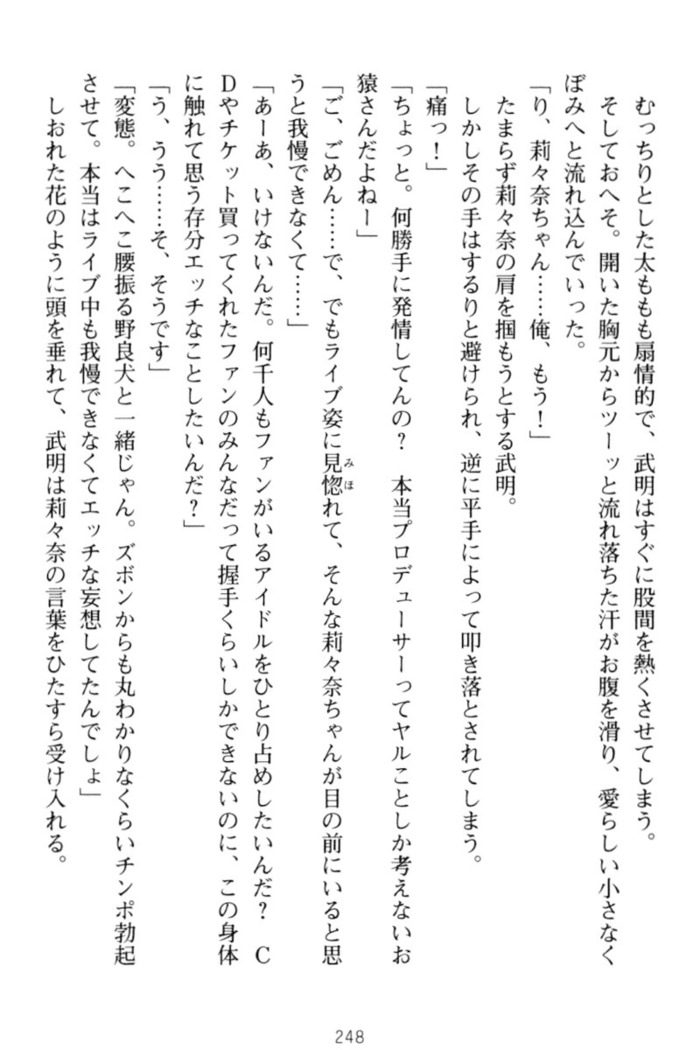 むっちりとした太ももも扇情的で、武明はすぐに股間を熱くさせてしまう。
そしておへそ。開いた胸元からツーッと流れ落ちた汗がお腹を滑り、愛らしい小さなく
ぼみへと流れ込んでいった。
「り、莉々奈ちゃん……俺、もう！」
たまらず莉々奈の肩を掴もうとする武明。
しかしその手はするりと避けられ、逆に平手によって叩き落とされてしまう。
「痛っ！」
「ちょっと。何勝手に発情してんの？　本当プロデューサーってヤルことしか考えないお
猿さんだよねー」
「ご、ごめん……で、でもライブ姿に見惚れて、そんな莉々奈ちゃんが目の前にいると思
うと我慢できなくて……」
「あーあ、いけないんだ。何千人もファンがいるアイドルをひとり占めしたいんだ？　C
Dやチケット買ってくれたファンのみんなだって握手くらいしかできないのに、この身体
に触れて思う存分エッチなことしたいんだ？」
「う、うう……そ、そうです」
「変態。へこへこ腰振る野良犬と一緒じゃん。ズボンからも丸わかりなくらいチンポ勃起
させて。本当はライブ中も我慢できなくてエッチな妄想してたんでしょ」
しおれた花のように頭を垂れて、武明は莉々奈の言葉をひたすら受け入れる。
みほ
248